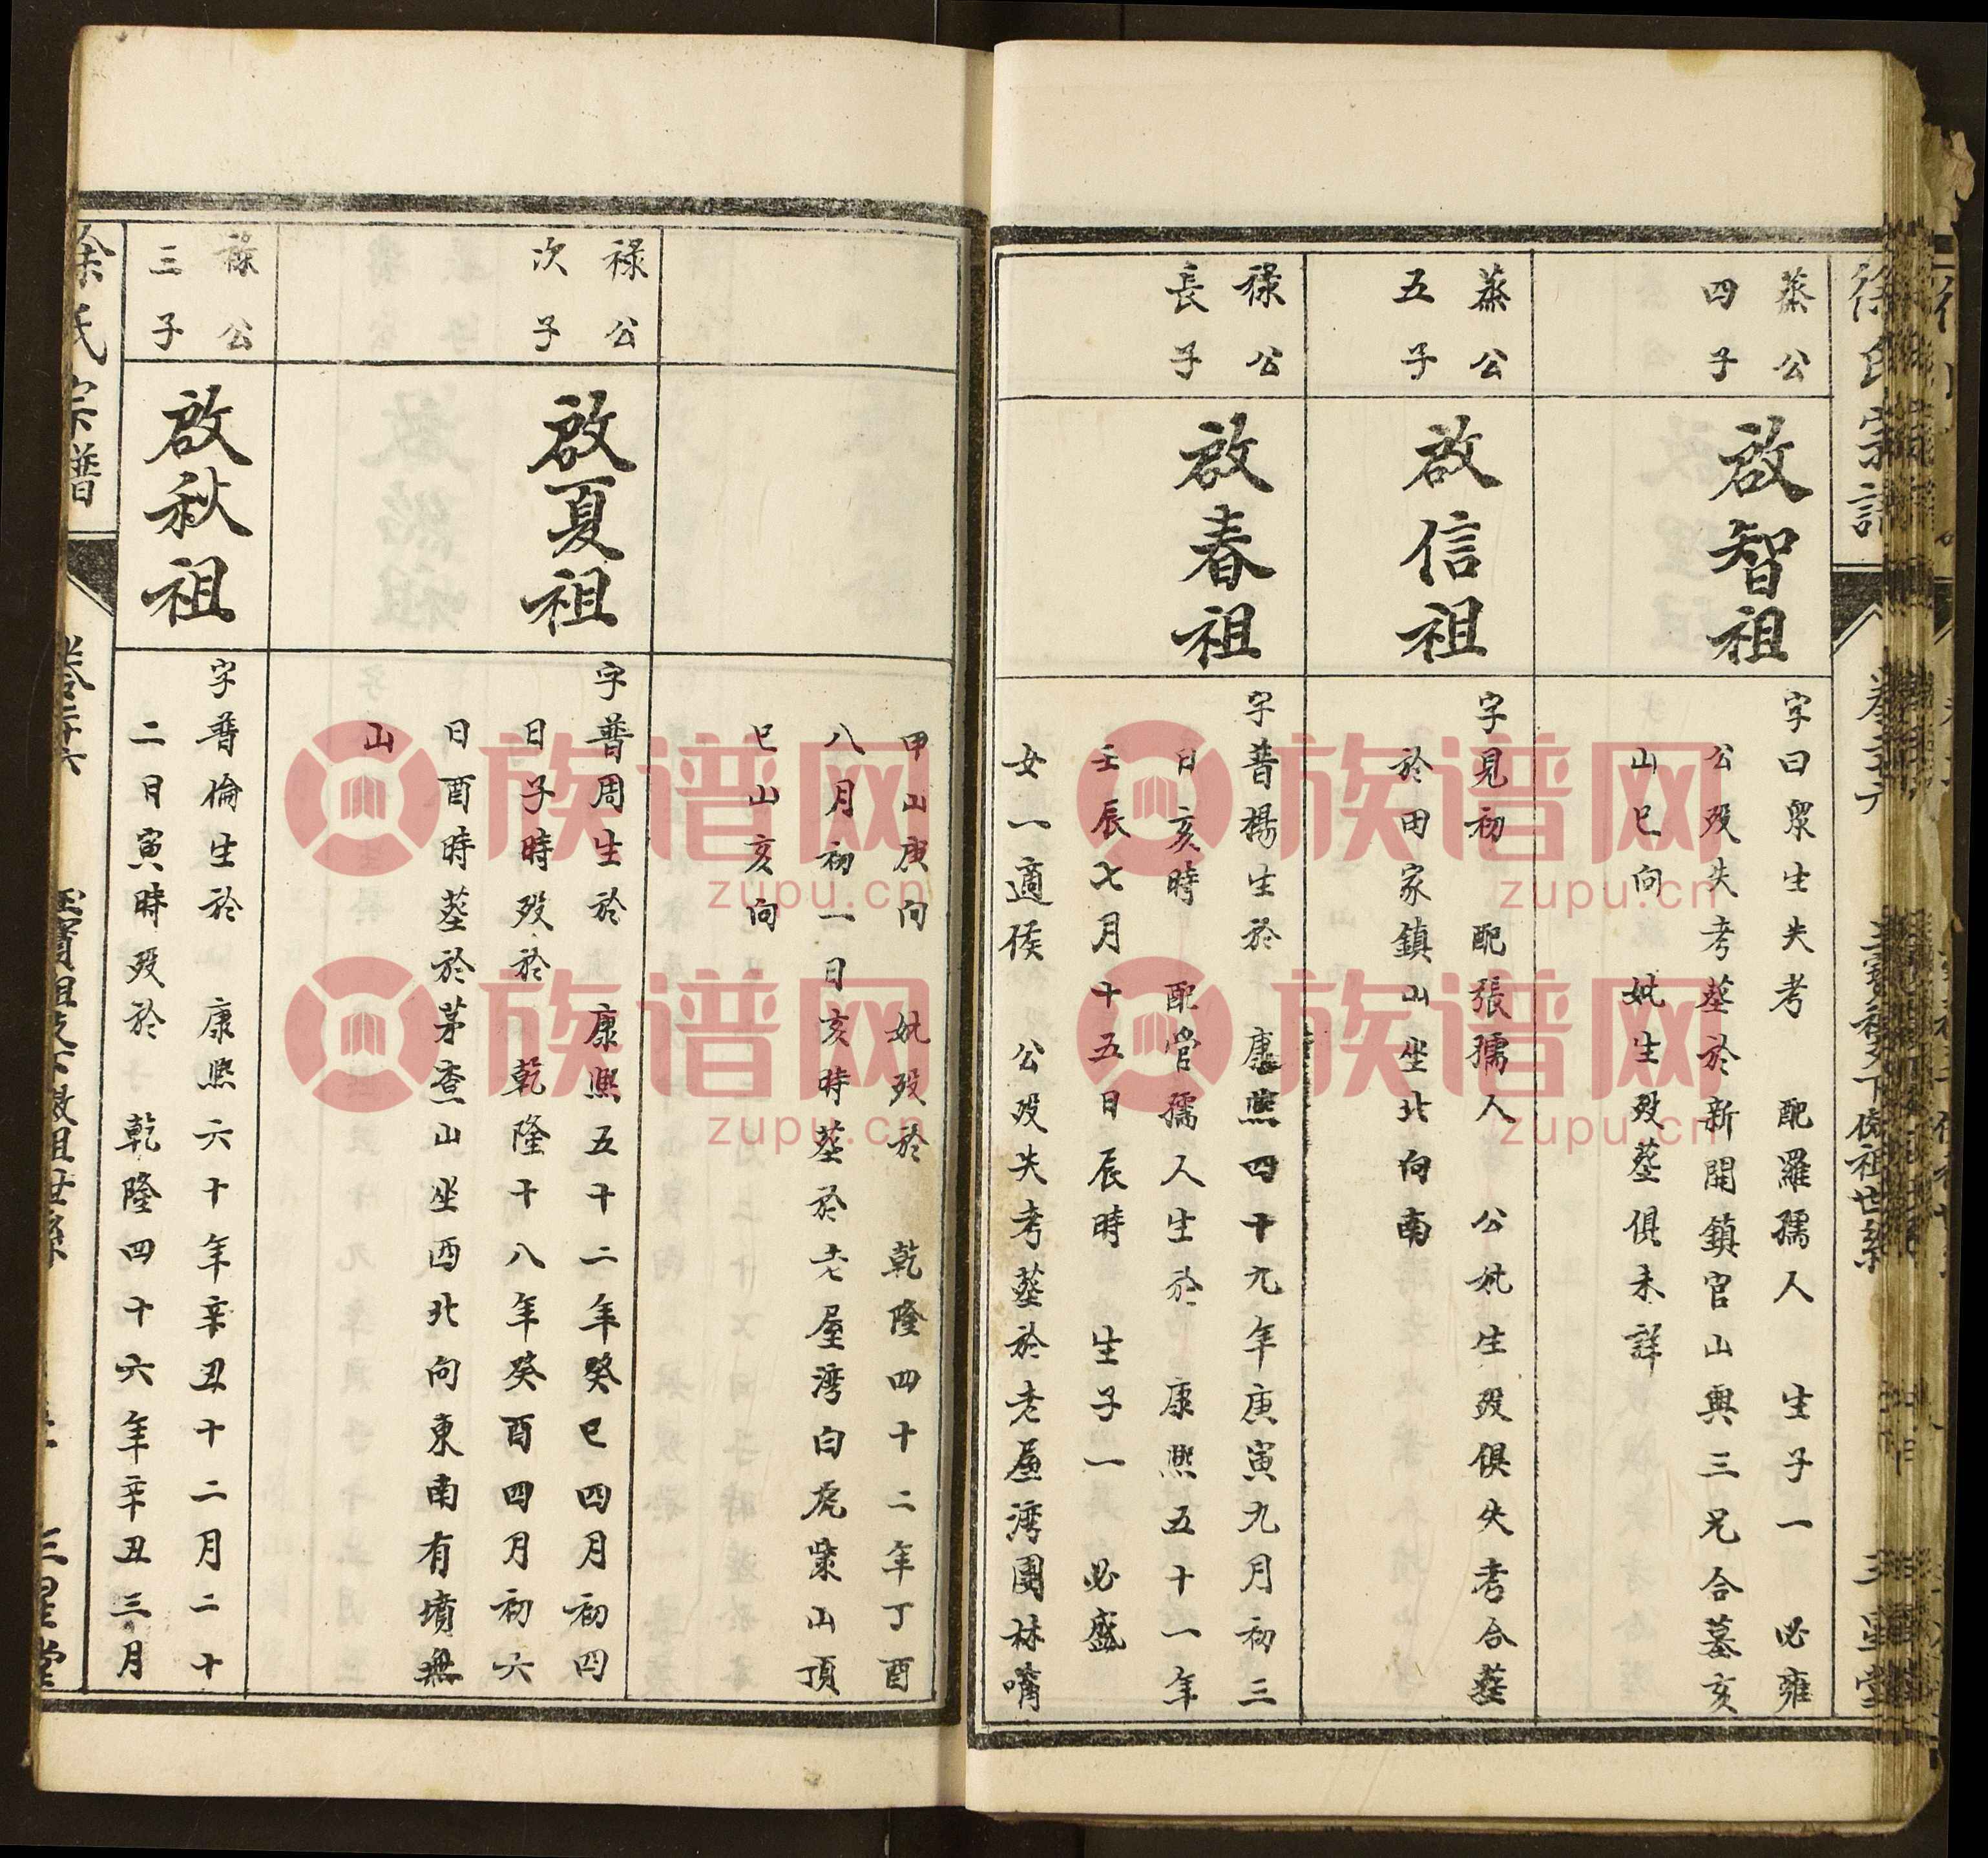 徐氏宗譜
卷二六
蒸公
四子
啟智祖
字曰眾生失考 配羅孺人 生子一 必雍
公歿失考塟於新開鎮官山與三兄合墓亥
山巳向 妣生歿塟俱未詳
蒸公
五子
啟信祖
字見初 配張孺人 公妣生歿俱失考合塟
於田家鎮山坐北向南
祿公
長子
啟春祖
字普楊生於 康熙四十九年庚寅九月初三
日亥時 配管孺人生於 康熙五十一年
壬辰七月十五日辰時 生子一 必盛
女一適侯 公歿失考塟於老屋湾團林嘴
甲山庚向 妣歿於 乾隆四十二年丁酉
八月初一日亥時塟於老屋湾白虎柴山頂
巳山亥向
祿公
次子
啟夏祖
字普周生於 康熙五十二年癸巳四月初四
日子時歿於 乾隆十八年癸酉四月初六
日酉時塟於茅查山坐西北向東南有墳無
山
祿公
三子
啟秋祖
字普倫生於 康熙六十年辛丑十二月二十
二日寅時歿於 乾隆四十六年辛丑三月
徐氏宗譜
卷二六
三星堂
族谱网
zupu.cn
族谱网
zupu.cn
族谱网
zupu.cn
族谱网
zupu.cn